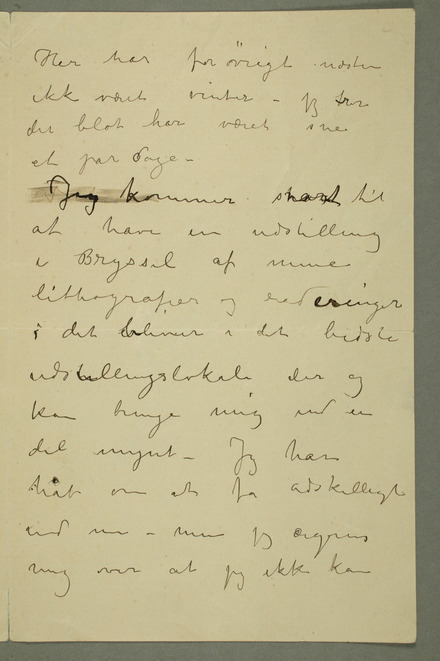 Her har forövrigt næsten
ikke været vinter – jeg tror
det blot har været sne
et par dage –
Jeg kommer snart til
at have en udstilling
i Bryssel af mine
lithografier og raderinger
i det bliver i det bedste
udstillingslokale der og
kan bringe mig ind en
del mynt – Jeg har
håb om at få adskilligt
ind nu – men jeg ærgrer
mig over at jeg ikke kan